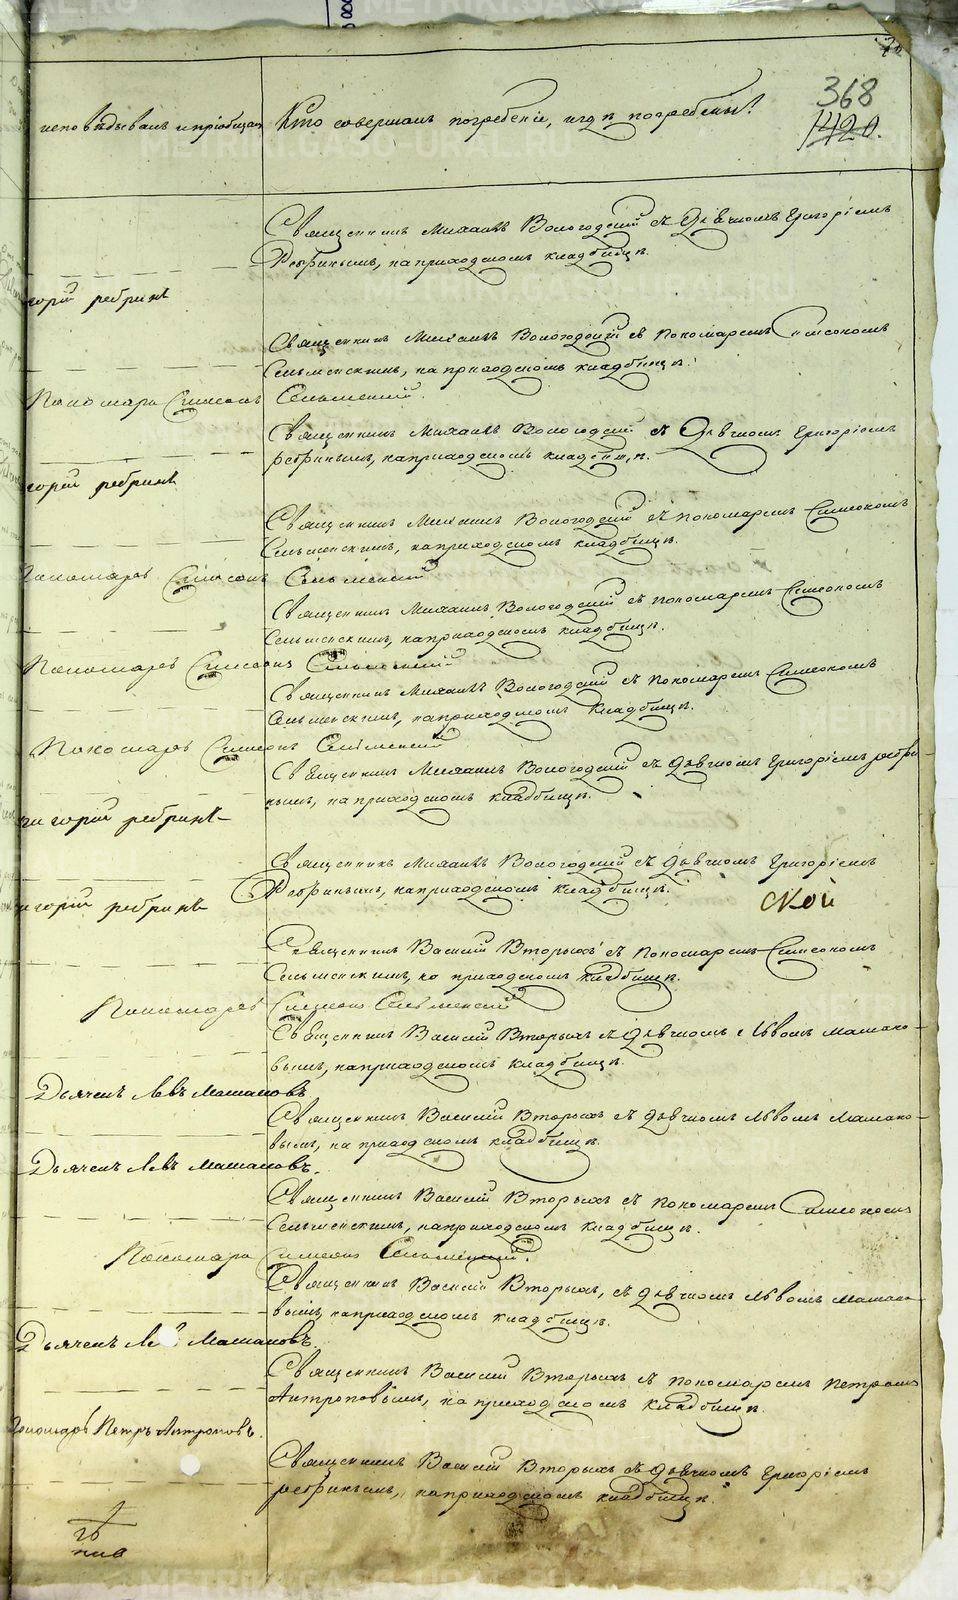 368
1420.
исповѣдывалъ и пріобщалъ
Кто совершалъ погребеніе, и гдѣ погребены?
Священникъ Михаилъ Вологодскій съ Дьячкомъ Григоріемъ
Ребринымъ, на приходскомъ кладбищѣ.
горій ребринъ
Священникъ Михаилъ Вологодскій съ Пономаремъ Симеономъ
Сельменскимъ, на приходскомъ кладбищѣ.
Пономарь Симеонъ Сельменскій.
Священникъ Михаилъ Вологодскій съ Дьячкомъ Григоріемъ
ребринымъ, на приходскомъ кладбищѣ.
горій ребринъ
Священникъ Михаилъ Вологодскій съ Пономаремъ Симеономъ
Сельменскимъ, на приходскомъ кладбищѣ.
Пономарь Симеонъ Сельменскій
Священникъ Михаилъ Вологодскій съ пономаремъ Симеономъ
Сельменскимъ, на приходскомъ кладбищѣ.
Пономарь Симеонъ Сельменскій
Священникъ Михаилъ Вологодскій съ Пономаремъ Симеономъ
Сельменскимъ, на приходскомъ кладбищѣ.
Пономарь Симеонъ Сельменскій
Священникъ Михаилъ Вологодскій съ дьячкомъ Григоріемъ ребри-
нымъ, на приходскомъ кладбищѣ.
горій ребринъ
Священникъ Михаилъ Вологодскій съ дьячкомъ Григоріемъ
Ребринымъ, на приходскомъ кладбищѣ.
ской
горій ребринъ
Священникъ Василій Вторыхъ съ Пономаремъ Симеономъ
Сельменскимъ, на приходскомъ кладбищѣ.
Пономарь Симеонъ Сельменскій
Священникъ Василій Вторыхъ съ дьячкомъ Львомъ Машано-
вымъ, на приходскомъ кладбищѣ.
Дьячекъ Левъ Машановъ
Священникъ Василій Вторыхъ съ дьячкомъ Львомъ Машано-
вымъ, на приходскомъ кладбищѣ.
Дьячекъ Левъ Машановъ.
Священникъ Василій Вторыхъ съ Пономаремъ Симеономъ
Сельменскимъ, на приходскомъ кладбищѣ.
Пономарь Симеонъ Сельменскій.
Священникъ Василій Вторыхъ, съ дьячкомъ Львомъ Машано-
вымъ, на приходскомъ кладбищѣ.
Дьячекъ Левъ Машановъ.
Священникъ Василій Вторыхъ съ пономаремъ Петромъ
Антроповымъ, на приходскомъ кладбищѣ.
Пономарь Петръ Антроповъ.
Священникъ Василій Вторыхъ съ дьячкомъ Григоріемъ
ребринымъ, на приходскомъ кладбищѣ.
METRIKI.GASO-URAL.RU